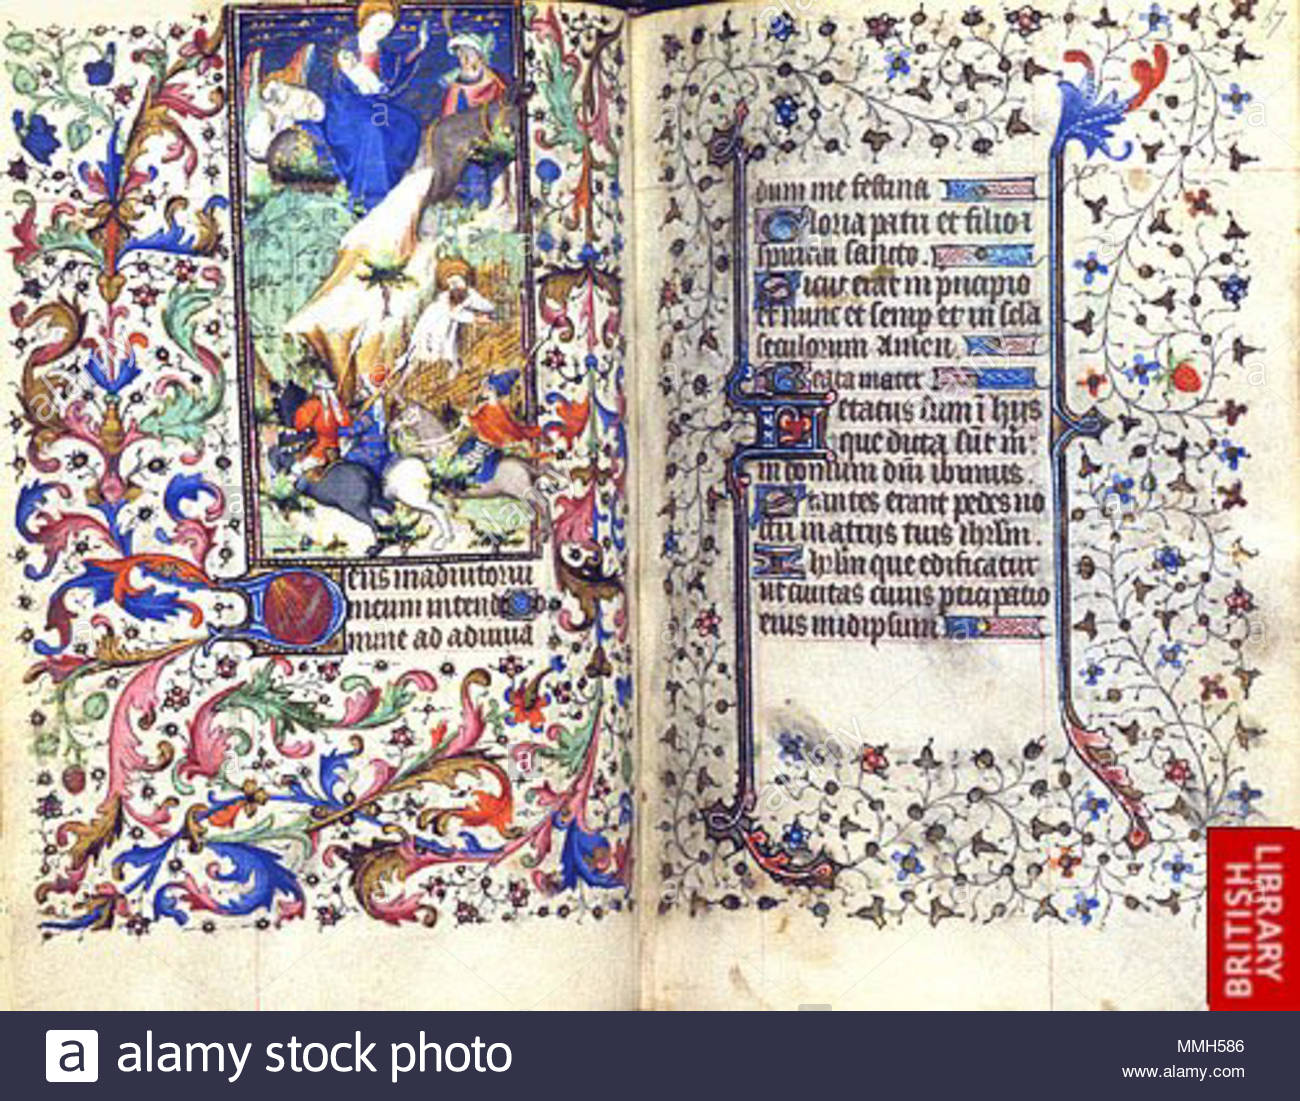 eus in adiutoriu
meum intend
mine ad adiuua
67
dum me festina
Gloria patri et filio i
spiritui sancto.
Sicut erat in pricipio
et nunc et semp et in sela
seculorum Amen.
Beata mater
Letatus sum i hijs
que dicta sut m:
in domum dni ibimus.
Stantes erant pedes no
stri in atrijs tuis ihrlm.
Ihrlm que edificatur
ut ciuitas cuius pticipatio
eius in idipsum
BRITISH
LIBRARY
a alamy stock photo
MMH586
www.alamy.com